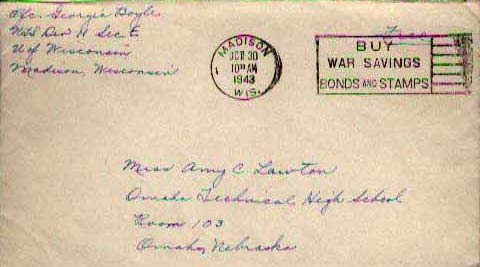 Pfc. Georgie Boyle
USS Div II Sec. E
U of Wisconsin
Madison, Wisconsin
MADISON
OCT 30
10 AM
1943
WIS.
Free
BUY
WAR SAVINGS
BONDS AND STAMPS
Miss Amy C. Lawton
Omaha Technical High School
Room 103
Omaha, Nebraska